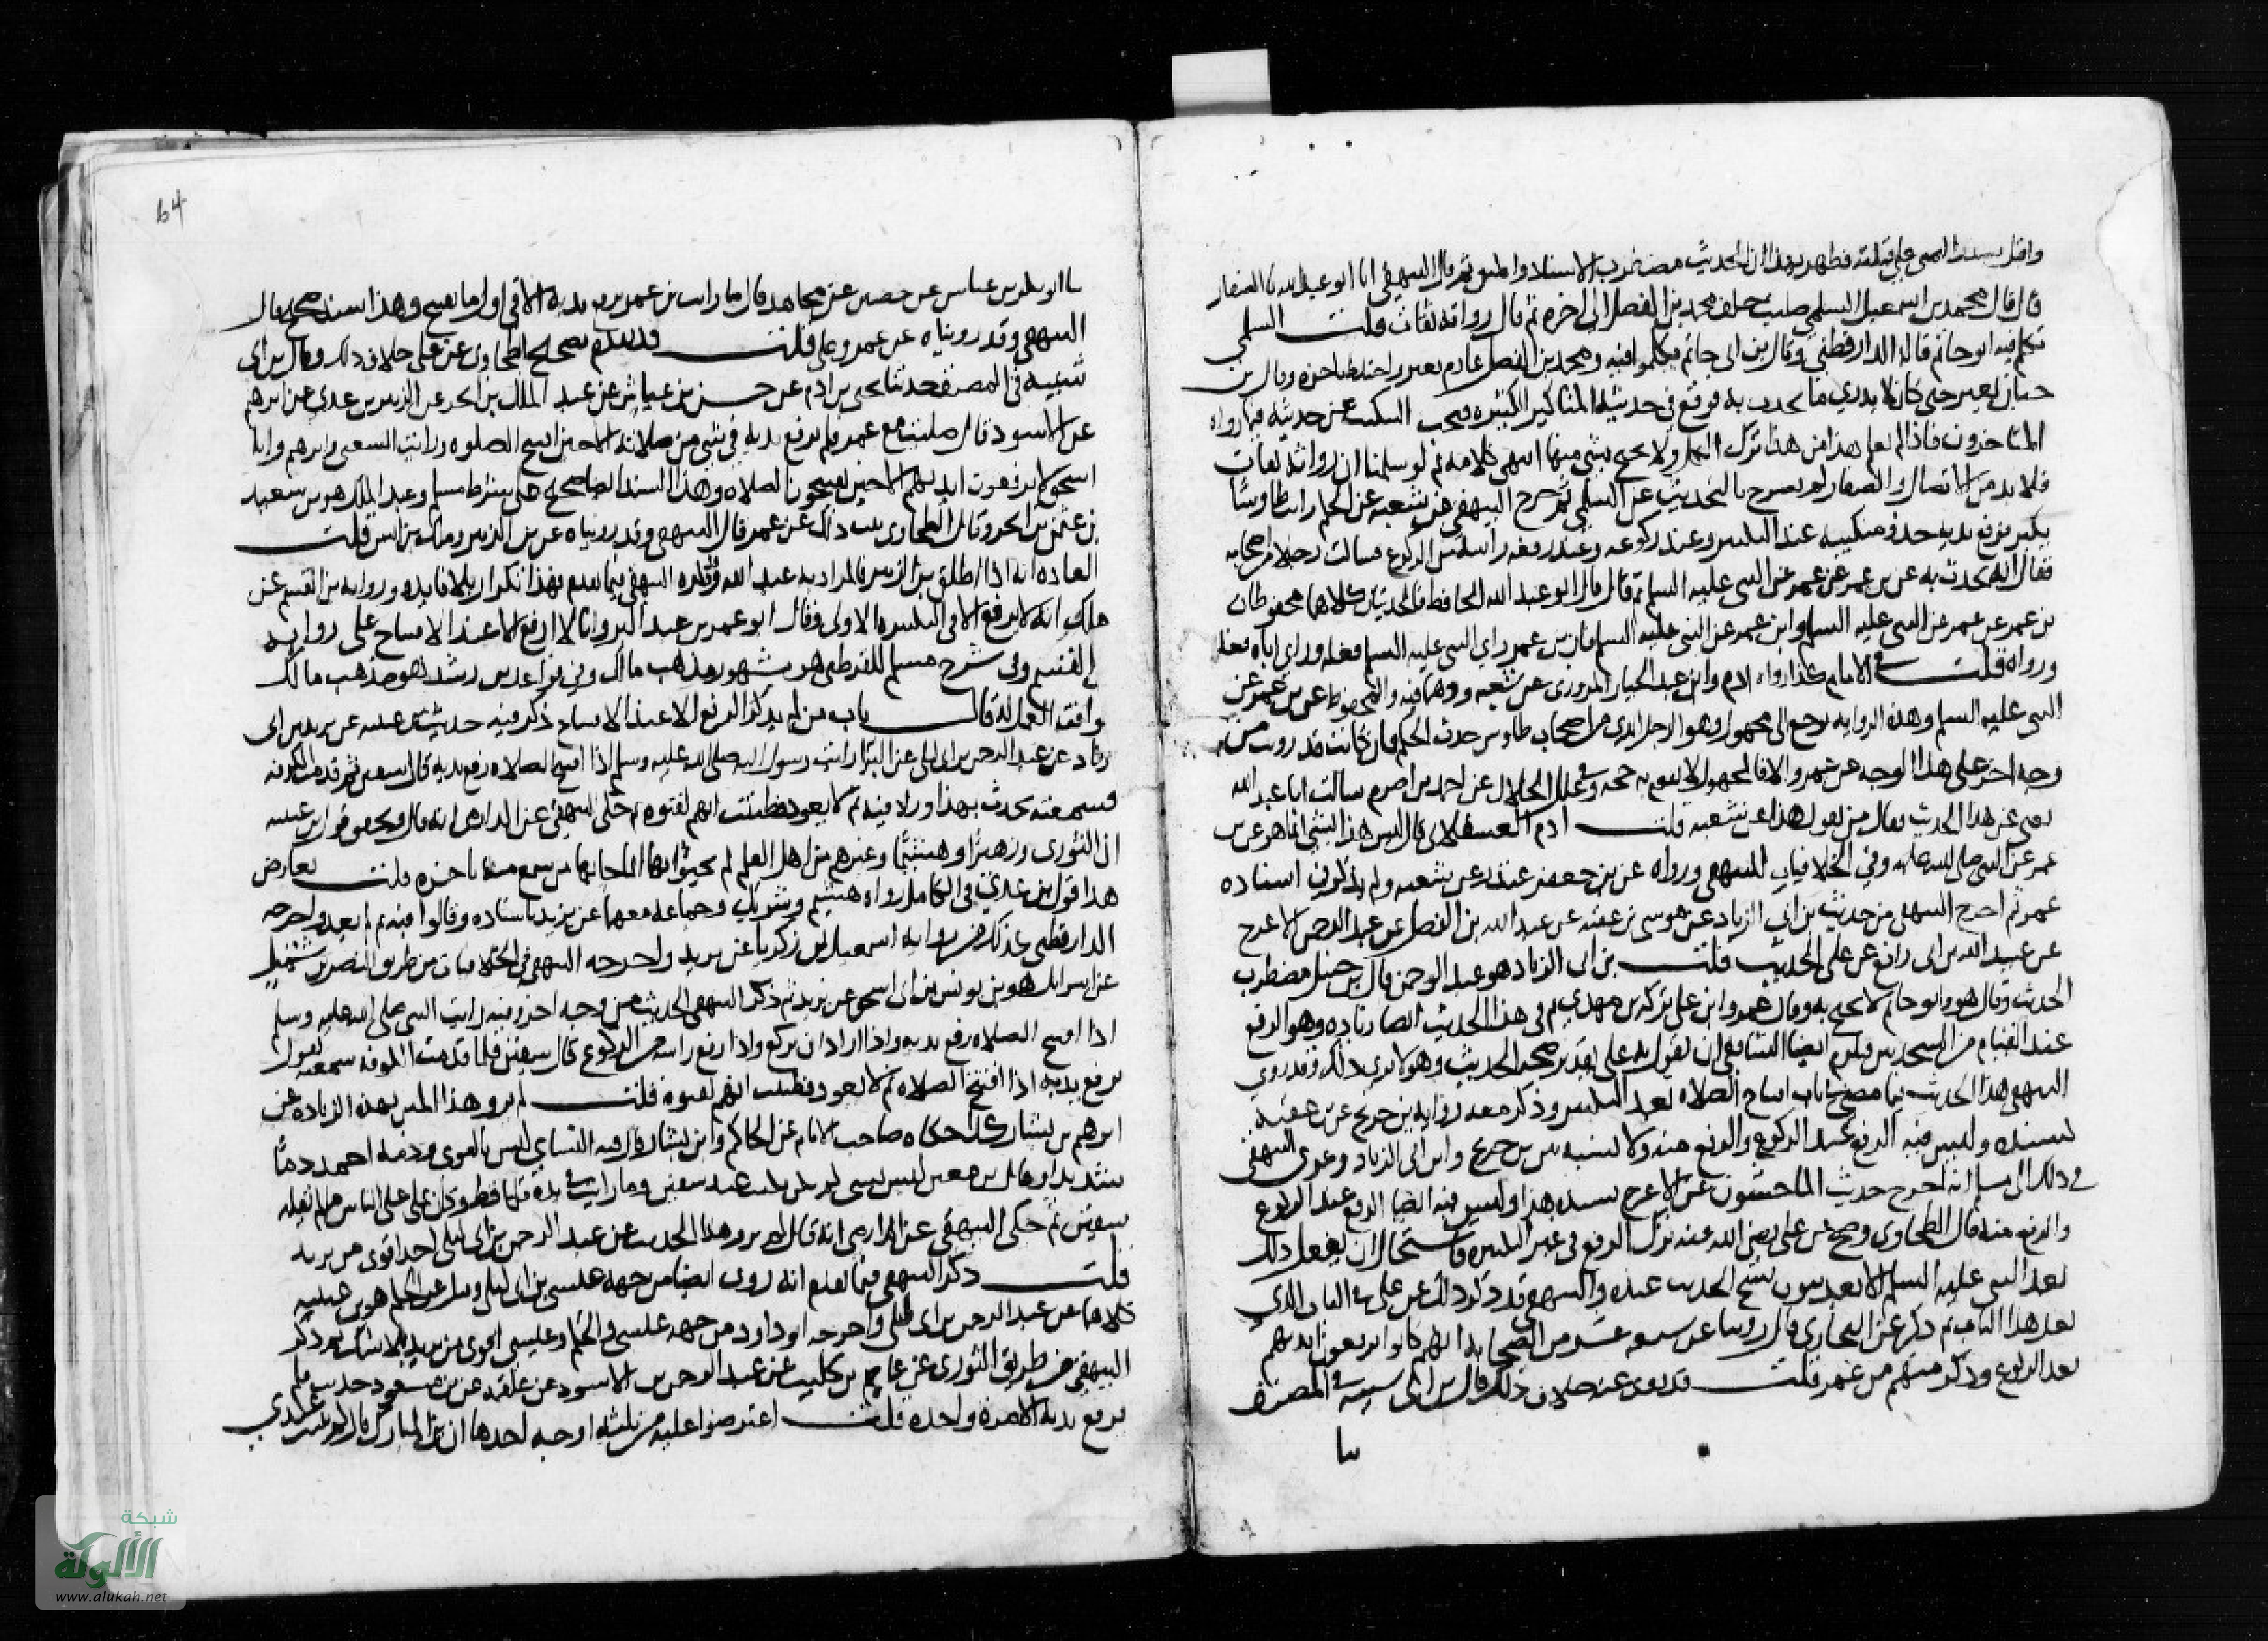 واقل سندا الى على قبلته فظهر بهذا ان الحديث مضطرب الاسناد والمتن ثم قال البيهقى انا ابو عبد الله نا الصفار
قال قال محمد بن اسمعيل السلمي صليت خلف محمد بن الفضل الى اخره ثم قال رواته ثقات قلت السلمي
تكلم فيه ابو حاتم قاله الدارقطني وقال بن ابى حاتم تكلموا فيه ومحمد بن الفضل عارم تغير واختلط باخره وقال بن
حبان تغير حتى كان لا يدري ما يحدث به فوقع في حديثه المناكير الكثيره فيجب التنكب عن حديثه فيما رواه
المتاخرون فاذا لم يعلم هذا من هذا ترك الكل ولا يحتج بشي منها انتهى كلامه ثم لو سلمنا ان رواته ثقات
فلا بد من الاتصال والصفار لم يصرح بالتحديث عن السلمي ثم خرج البيهقى عن شعبه عن الحكم رايت طاوسا
يكبر يرفع يديه حذو منكبيه عند التكبير وعند ركوعه وعند رفعه راسه من الركوع فسالت رجلا من اصحابه
فقال انه يحدث به عن بن عمر عن عمر عن النبى عليه السلام ثم قال قال ابو عبد الله الحافظ فالحديثان كلاهما محفوظان
بن عمر عن عمر عن النبى عليه السلام وابن عمر عن النبى عليه السلام فان بن عمر راى النبى عليه السلام فعله وراى اباه فعله
ورواه قلت في الامام كذا رواه ادم وابن عبد الجبار المروزى عن شعبه ووهما فيه والمحفوظ عن بن عمر عن
النبى عليه السلام وهذه الروايه ترجع الى مجهول وهو الرجل الذى من اصحاب طاوس حدث الحكم فان كانت قد رويت من
وجه اخر على هذا الوجه عن عمر والا فالمجهول لا يقوم به حجه وفي علل الخلال عن احمد بن اصرم سالت ابا عبد الله
يعنى عن هذا الحديث فقال من يقول هذا عن شعبه قلت ادم العسقلانى قال ليس هذا بشي انما هو عن بن
عمر عن النبى صلى الله عليه وفي الخلافيات للبيهقى ورواه عن بن جعفر غندر عن شعبه ولم يذكر فى اسناده
عمر ثم اخرج البيهقى من حديث بن ابى الزناد عن موسى بن عقبه عن عبد الله بن الفضل عن عبد الرحمن الاعرج
عن عبيد الله بن ابى رافع عن على الحديث قلت بن ابى الزناد هو عبد الرحمن قال بن حنبل مضطرب
الحديث وقال هو وابو حاتم لا يحتج به وقال عمرو بن على تركه بن مهدي ثم فى هذا الحديث ايضا زياده وهو الرفع
عند القيام من السجدتين فيلزم ايضا الشافعي ان يقول به على تقدير صحه الحديث وهو لا يرى ذلك وقد روي
البيهقى هذا الحديث فيما مضى فى باب افتتاح الصلاه بعد التكبير وذكر معه روايه بن جريج عن بن عقبه
بسنده وليس فيه الرفع عند الركوع والرفع منه ولا نسبه بين بن جريج وابن ابى الزناد وعزى البيهقى
في ذلك الى مسلم انه اخرج حديث الماجشون عن الاعرج بسنده هذا وليس فيه ايضا الرفع عند الركوع
والرفع منه قال الطحاوى وصح عن على رضى الله عنه ترك الرفع فى غير التكبيره فاستحال ان يفعل ذلك
بعد النبى عليه السلام الا بعد ثبوت نسخ الحديث عنده والبيهقى قد ذكر ذلك عن على في الباب الذي
بعد هذا الباب ثم ذكر عن البخارى قال روينا عن سبعه عشر من الصحابه انهم كانوا يرفعون ايديهم
عند الركوع وذكر منهم عمر قلت قد روى عنه خلاف ذلك قال بن ابى شيبه في المصنف
نا
64
نا ابو بكر بن عياش عن حصين عن مجاهد قال ما رايت بن عمر يرفع يديه الا فى اول ما يفتتح وهذا سند صحيح قال
البيهقى وقد رويناه عن عمر وعلى قلت قد تقدم تصحيح الطحاوى عن على خلاف ذلك وقال بن ابى
شيبه فى المصنف حدثنا يحيى بن ادم عن حسن بن عياش عن عبد الملك بن ابحر عن الزبير بن عدى عن ابرهيم
عن الاسود قال صليت مع عمر فلم يرفع يديه في شى من صلاته الا حين افتتح الصلوه ورايت الشعبى وابرهيم وابا
اسحق لا يرفعون ايديهم الا حين يفتتحون الصلاه وهذا السند ايضا صحيح على شرط مسلم وعبد الملك هو بن سعيد
بن حيان بن ابحر وقال الطحاوى ثبت ذلك عن عمر قال البيهقى وقد رويناه عن بن الزبير ومالك بن انس قلت
العاده انه اذا اطلق بن الزبير فالمراد به عبد الله وقد ذكره البيهقى فيما تقدم فهذا تكرار بلا فايده وروايه بن القسم عن
مالك انه لا يرفع الا في التكبيره الاولى وقال ابو عمر بن عبد البر وانا لا ارفع الا عند الافتتاح على روايه
بن القسم وفى شرح مسلم للقرطبى هو مشهور مذهب مالك وفى قواعد بن رشد هو مذهب مالك
وافقه العمل له قال باب من لم يذكر الرفع الا عند الافتتاح ذكر فيه حديث بن عيينه عن يزيد بن ابى
زياد عن عبد الرحمن بن ابى ليلى عن البرا رايت رسول الله صلى الله عليه وسلم اذا افتتح الصلاه رفع يديه قال سفين ثم قدمت الكوفه
فسمعته يحدث بهذا وزاد فيه ثم لا يعود فظننت انهم لقنوه ثم حكى البيهقى عن الدارمى انه قال ويحقق قول ابن عيينه
ان الثورى وزهيرا وهشيما وغيرهم من اهل العلم لم يجيئوا بها انما جا بها من سمع منه باخره قلت يعارض
هذا قول بن عدي فى الكامل رواه هشيم وشريك وجماعه معهما عن يزيد باسناده وقالوا فيه ثم لم يعد واخرجه
الدارقطنى كذلك من روايه اسمعيل بن زكريا عن يزيد واخرجه البيهقى فى الخلافيات من طريق النضر بن شميل
عن اسرائل هو بن يونس بن ابى اسحق عن يزيد ثم ذكر البيهقى الحديث من وجه اخر وفيه رايت النبى صلى الله عليه وسلم
اذا افتتح الصلاه رفع يديه واذا اراد ان يركع واذا رفع راسه من الركوع قال سفين فلما قدمت الكوفه سمعته يقول
يرفع يديه اذا افتتح الصلاه ثم لا يعود فظننت انهم لقنوه قلت لم يرو هذا المتن بهذه الزياده عن
ابرهيم بن بشار كذا حكاه صاحب الامام عن الحاكم وابن بشار قال فيه النساي ليس بالقوى وذمه احمد ذما
شديدا وقال بن معين ليس بشى لم يكن يكتب عند سفين وما رايت في يده قلما قط وكان يملى على الناس ما لم يقله
سفين ثم حكى البيهقى عن الدارمى انه قال لم يرو هذا الحديث عن عبد الرحمن بن ابى ليلى احد اقوى من يزيد
قلت ذكر البيهقى فيما تقدم انه روى ايضا من جهه عيسى بن ابى ليلى وقيل عن الحكم هو بن عتيبه
كلاهما عن عبد الرحمن بن ابى ليلى واخرجه ابو داود من جهه عيسى والحكم وعيسى اقوى من يزيد بلا شك ثم ذكر
البيهقى من طريق الثورى عن عاصم بن كليب عن عبد الرحمن بن الاسود عن علقمه عن بن مسعود حديث فلم
يرفع يديه الا مره واحده قلت اعترضوا عليه من ثلثه اوجه احدها ان بن المبارك قال لم يثبت عندي
شبكة
الألوكة
www.alukah.net